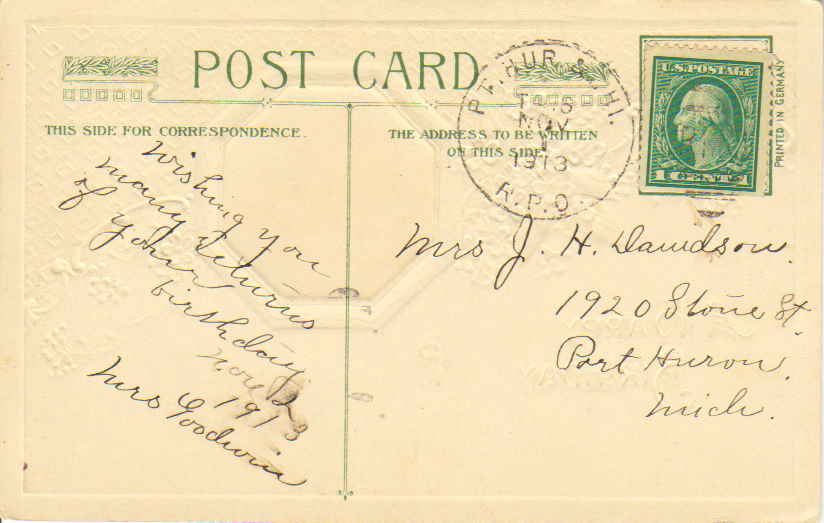 POST CARD
THIS SIDE FOR CORRESPONDENCE.
THE ADDRESS TO BE WRITTEN
ON THIS SIDE
PT. HUR. & CHI.
NOV
1
1913
R.P.O.
U.S. POSTAGE
1 CENT 1
PRINTED IN GERMANY
Wishing you
many returns
of your
birthday
Nov 2
1913
Mrs Goodwin
Mrs J. H. Davidson.
1920 Stone St.
Port Huron.
Mich.